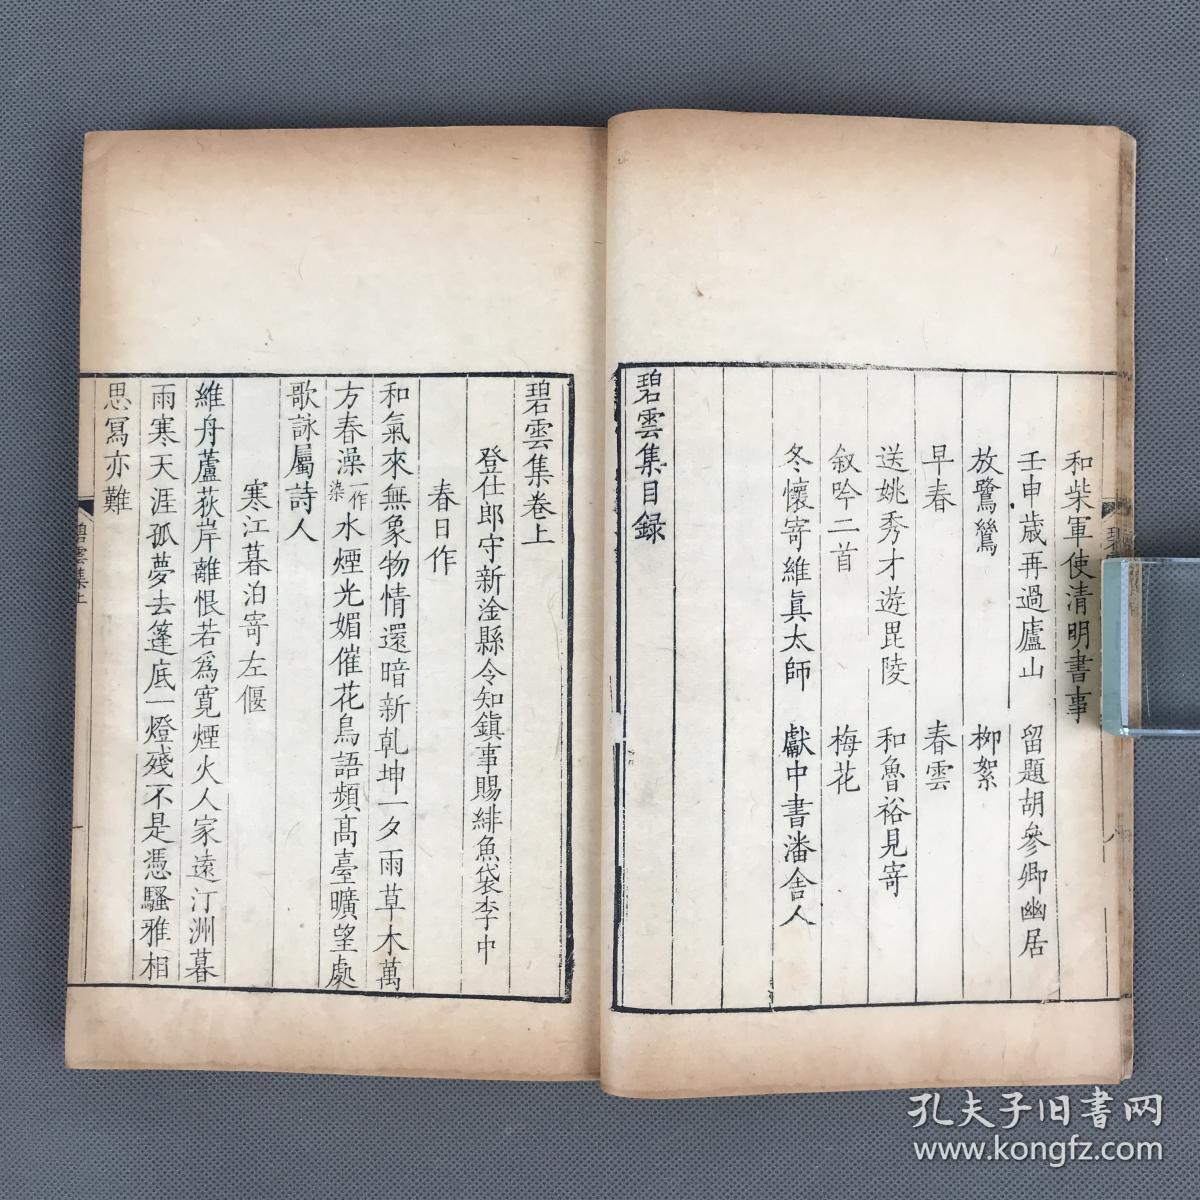 和柴軍使清明書事
壬申歲再過廬山　留題胡參卿幽居
放鷺鷥　柳絮
早春　春雲
送姚秀才遊毘陵　和魯裕見寄
叙吟二首　梅花
冬懷寄維眞太師　獻中書潘舍人
碧雲集目録
碧雲集卷上
登仕郎守新淦縣令知鎮事賜緋魚袋李中
春日作
和氣來無象物情還暗新乹坤一夕雨草木萬
方春澡一作染水煙光媚催花鳥語頻髙臺曠望處
歌詠屬詩人
寒江暮泊寄左偃
維舟蘆荻岸離恨若爲寛煙火人家遠汀洲暮
雨寒天涯孤夢去篷底一燈殘不是憑騷雅相
思寫亦難
碧雲集上
一
孔夫子旧書网
www.kongfz.com